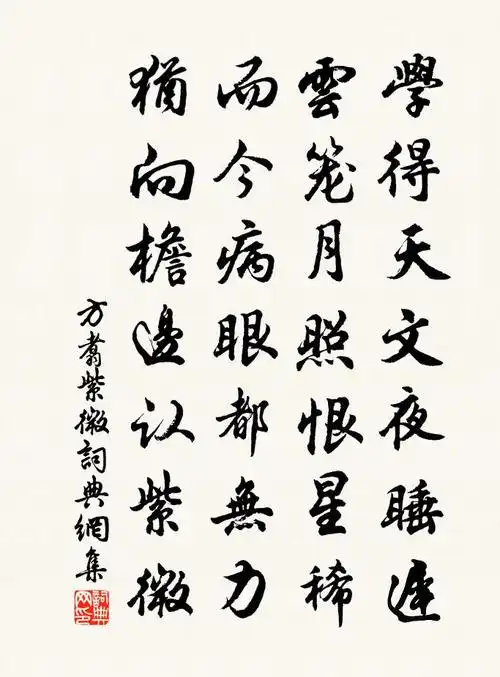 學得天文夜睡遲
雲笼月照恨星稀
而今病眼都無力
猶向檐邊认紫微
方翥紫微詞典網集
詞典网印